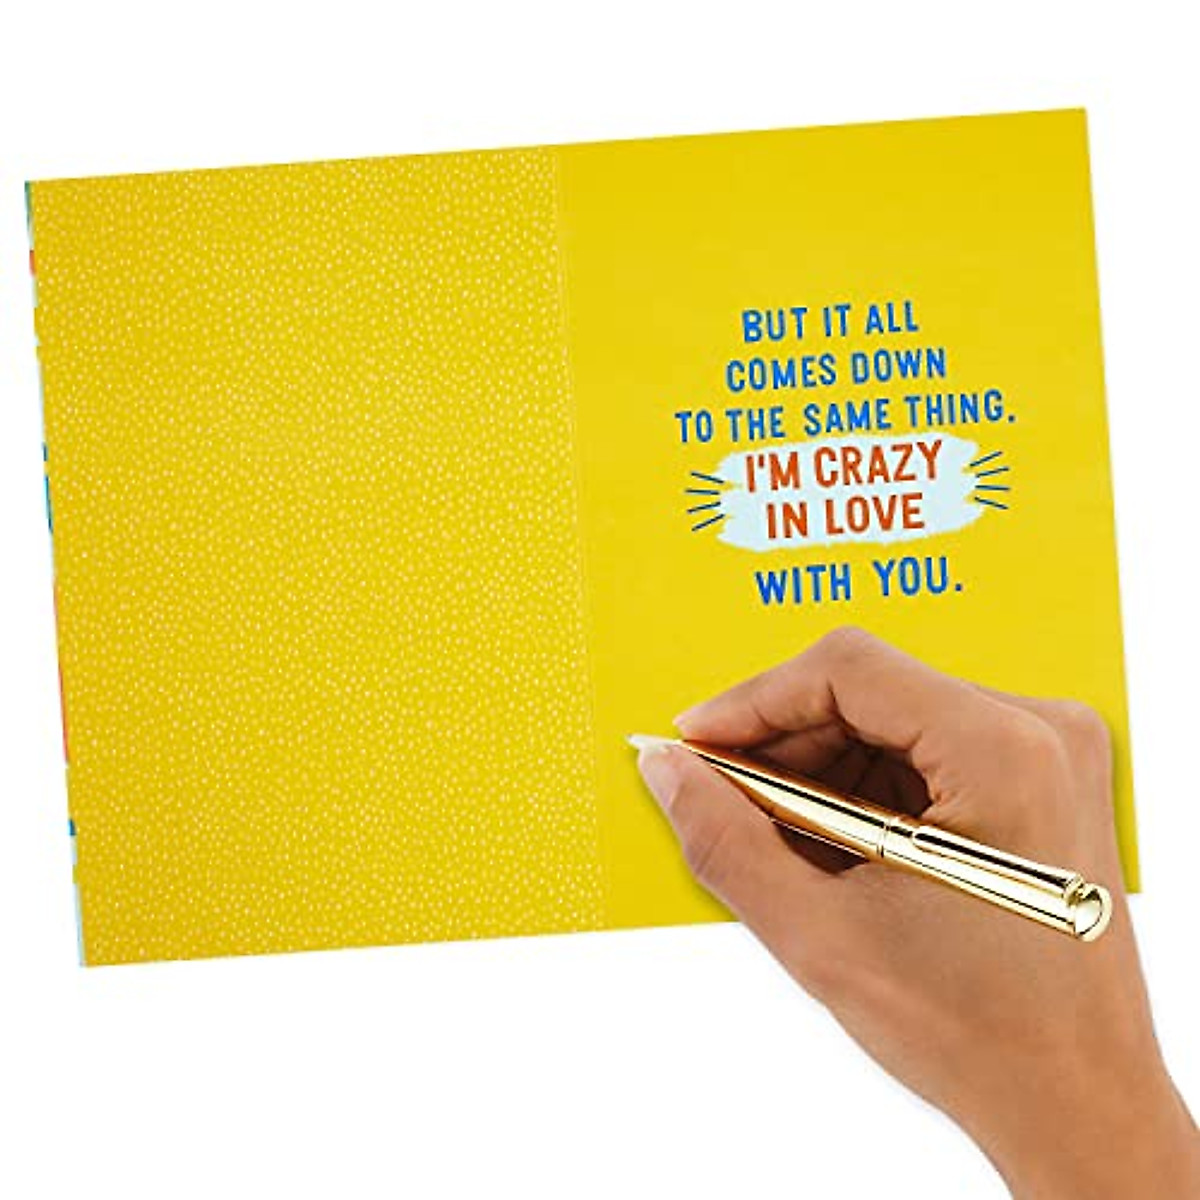 BUT IT ALL
COMES DOWN
TO THE SAME THING.
I'M CRAZY
IN LOVE
WITH YOU.